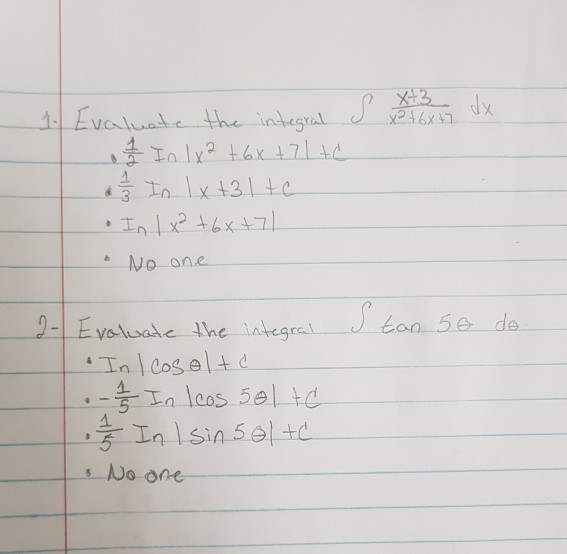 1. Evaluate the integral ∫ x+3 / x²+6x+7 dx
• 1/2 In |x² +6x +7| +C
• 1/3 In |x +3| +C
• In |x² +6x +7|
• No one
2- Evaluate the integral ∫ tan 5θ dθ
• In |cos θ| + C
• -1/5 In |cos 5θ| +C
• 1/5 In |sin 5θ| +C
• No one